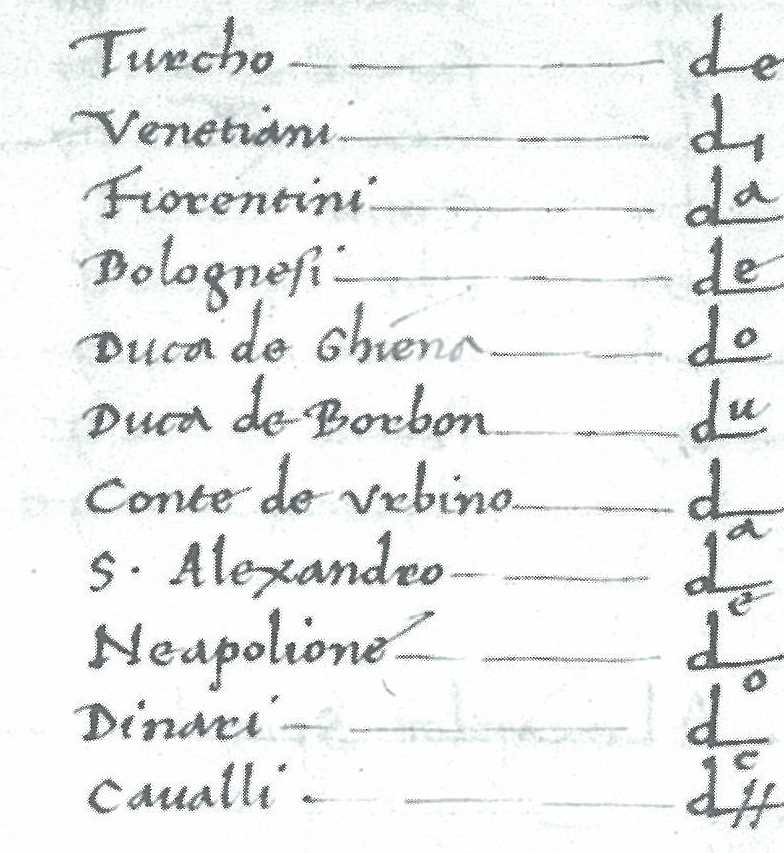 Turcho d e
Venetiani d i
Fiorentini d a
Bolognesi d e
Duca de Ghiena d o
Duca de Borbon d u
Conte de Urbino d
S. Alexandro d a
Neapolione d e
Dinari d o
Caualli d c